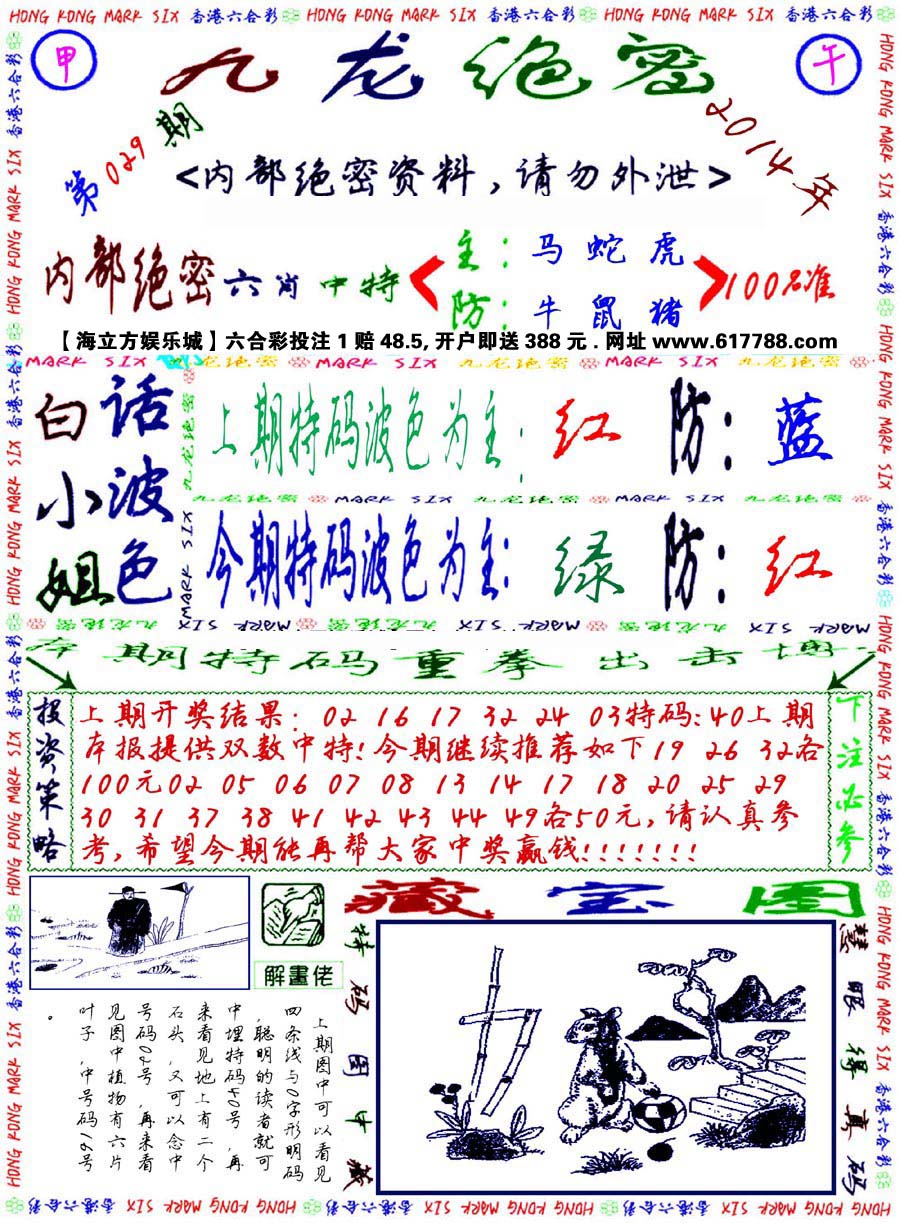 HONG KONG MARK SIX 香港六合彩 HONG KONG MARK SIX 香港六合彩 HONG KONG MARK SIX 香港六合彩
甲
九龙绝密
午
第029期
2014年
<内部绝密资料,请勿外泄>
内部绝密六肖中特
主:马蛇虎
防:牛鼠猪
100%准
【海立方娱乐城】六合彩投注1赔48.5,开户即送388元.网址www.617788.com
MARK SIX 九龙绝密 MARK SIX 九龙绝密 MARK SIX 九龙绝密 MARK SIX
白话小姐
波色
上期特码波色为主:红 防:蓝
九龙绝密 MARK SIX 九龙绝密 MARK SIX 九龙绝密
今期特码波色为主:绿 防:红
本期特码重拳出击
投资策略
上期开奖结果: 02 16 17 32 24 03特码:40上期
本报提供双数中特!今期继续推荐如下19 26 32各
100元02 05 06 07 08 13 14 17 18 20 25 29
30 31 37 38 41 42 43 44 49各50元,请认真参
考,希望今期能再帮大家中奖赢钱!!!!!!!
下注必参
藏宝图
解畫佬
特码图中藏
慧眼得真码
上期图中可以看见
四条线与0字形明码
,聪明的读者就可
中埋特码40号,再
来看见地上有二个
石头,又可以念中
号码02号,再来看
见图中植物有六片
叶子,中号码
。